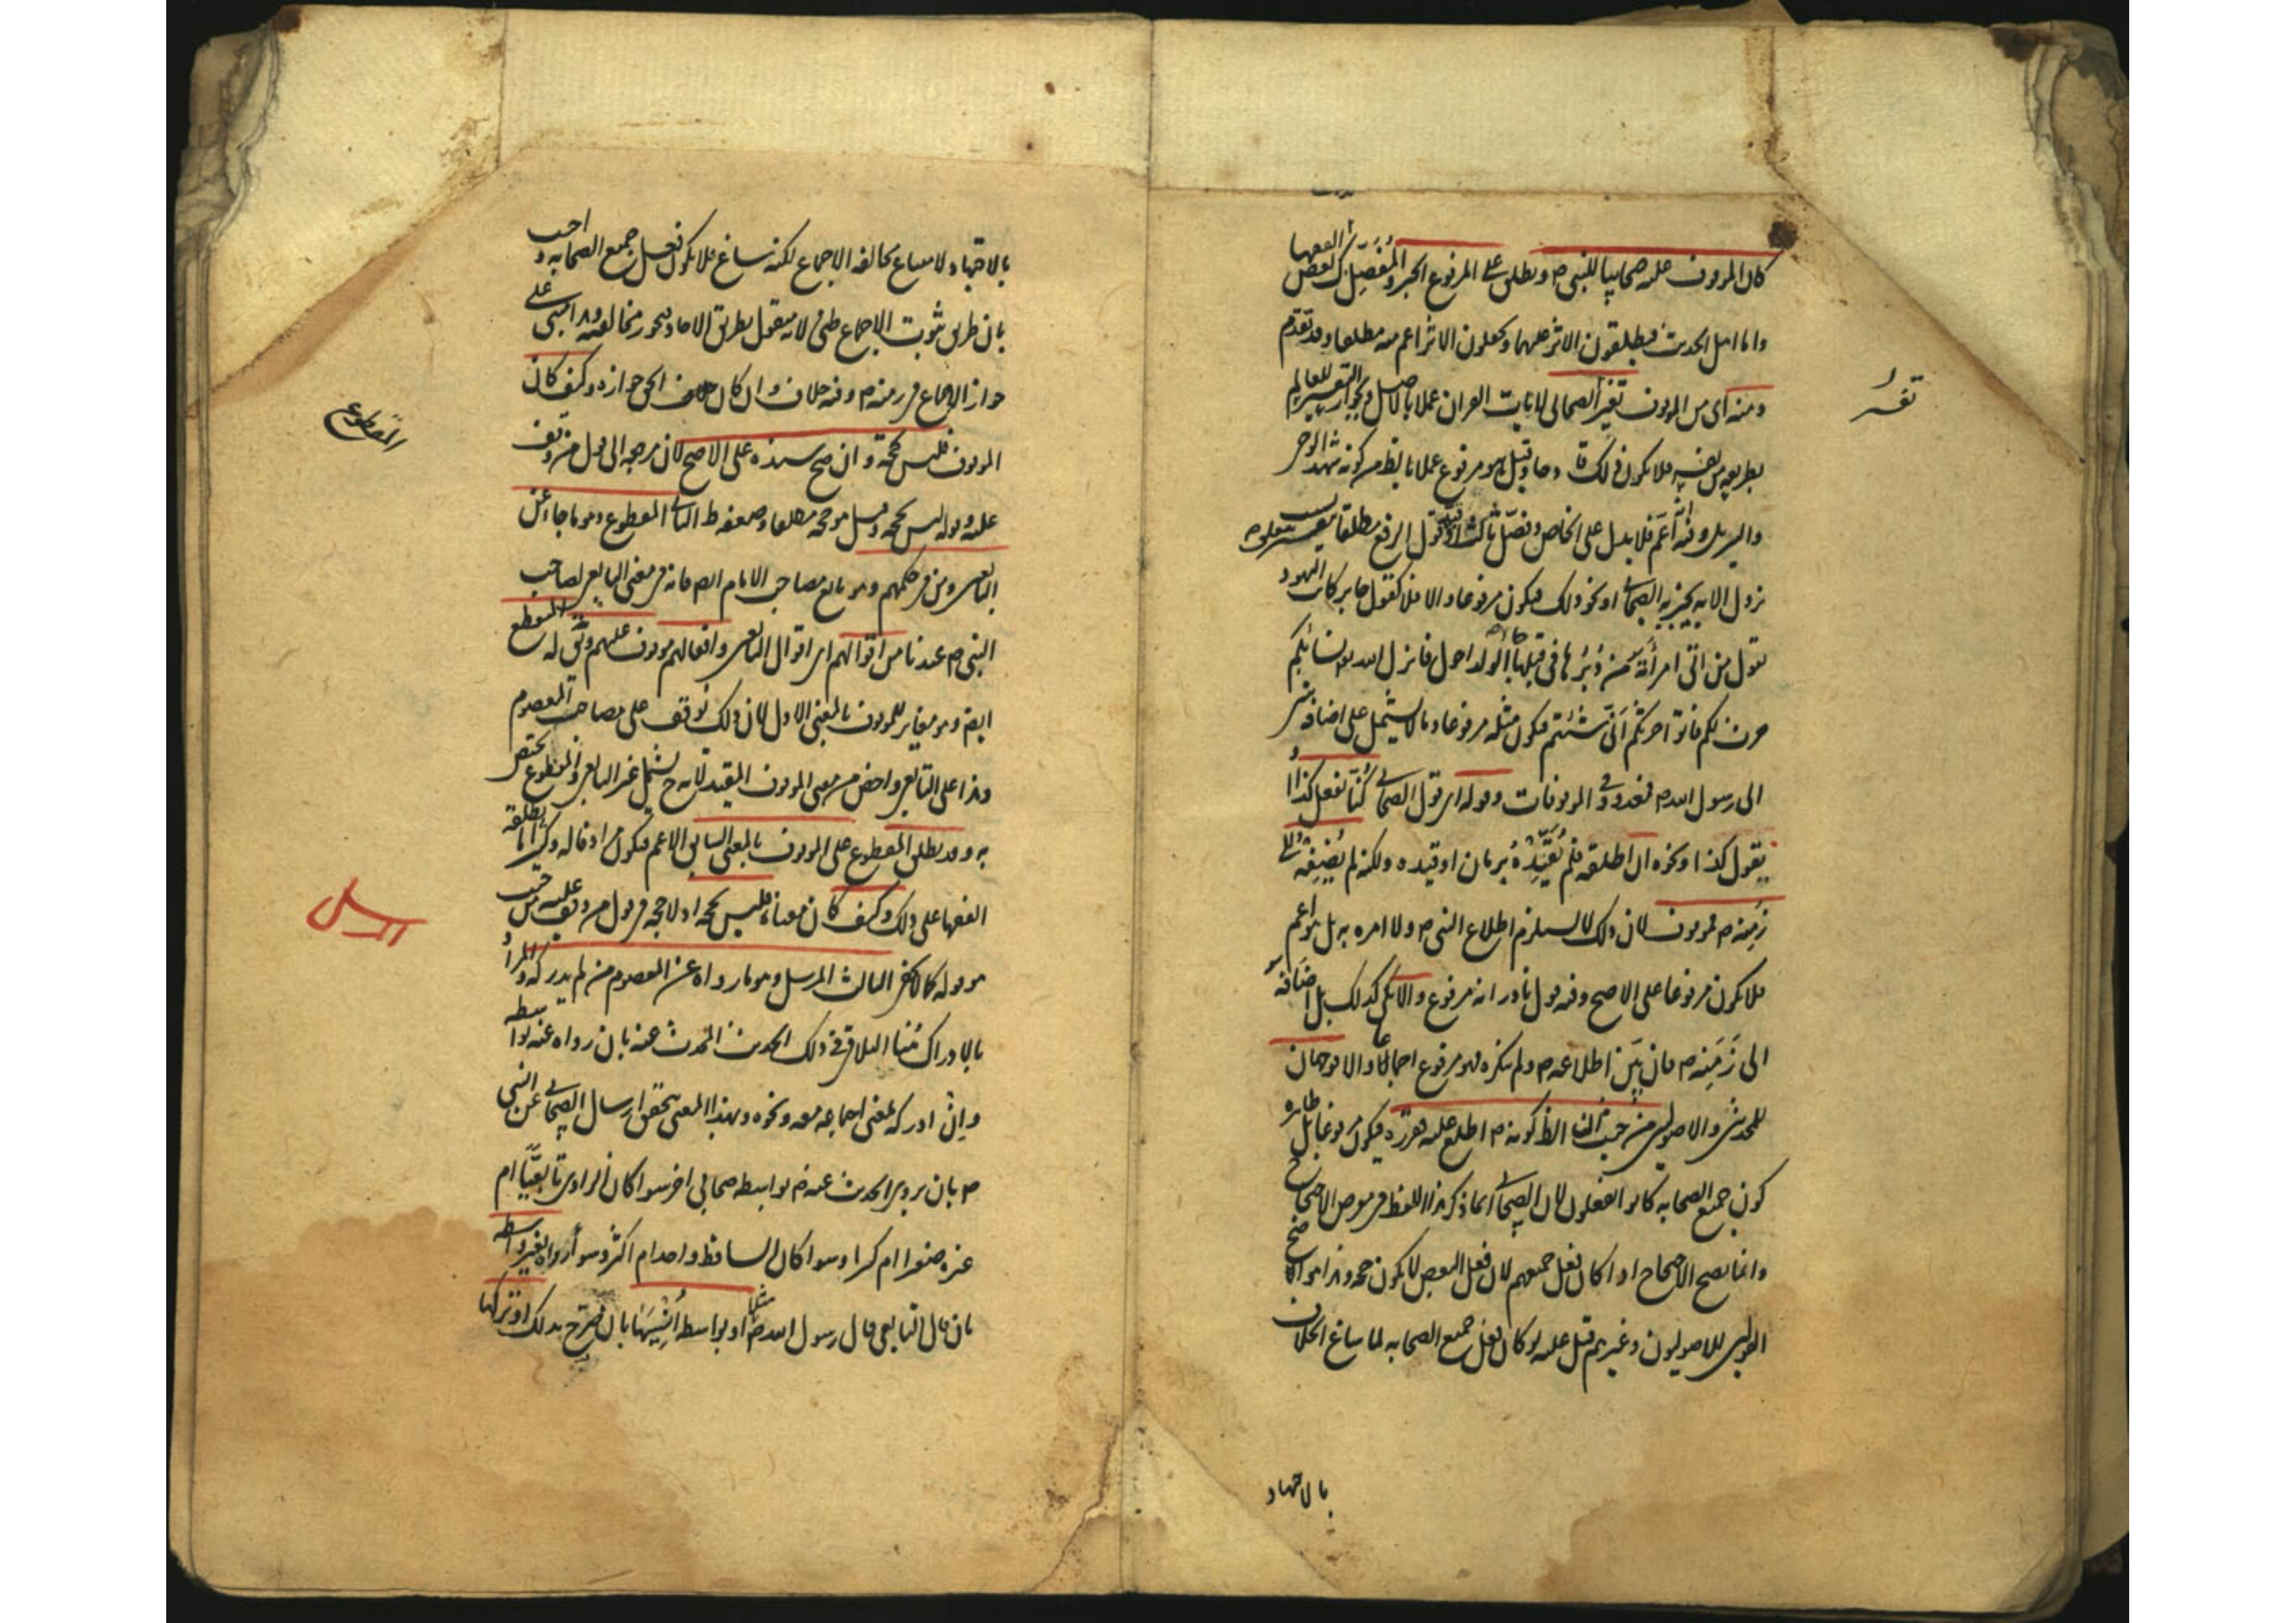 كان الموقوف عليه صحابيا للنبي ص ويطلق على المرفوع الخبر والمفصل كذلك بعض الفقهاء
واما اهل الحديث فيطلقون الاثر عليهما ويجعلون الاثر اعم منه مطلقا وقد تقدم
ومنه اى من الموقوف تفسير الصحابى لايات القران عملا بالاصل ولجواز التفسير للعالم
بطريقه من نفسه فلا يكون ذلك قادحا وقيل هو مرفوع عملا بالظ من كونه شهد الوحى
والتنزيل وفيه انه اعم فلا يدل على الخاص وفصل ثالث وقيد قول الرفع مطلقا بتفسير يتعلق بسبب
نزول الايه يخبر به الصحابى او نحو ذلك فيكون مرفوعا والا فلا كقول جابر كانت اليهود
تقول من اتى امرأته من دبرها فى قبلها جاء الولد احول فانزل الله تع نسائكم
حرث لكم فاتوا حرثكم انى شئتم فيكون مثله مرفوعا وما لا يشتمل على اضافة شىء
الى رسول الله ص فمعدود فى الموقوفات وقوله اى قول الصحابى كنا نفعل كذا او
يقول كذا ونحوه ان اطلقه فلم يقيده بزمان او قيده ولكنه لم يضفه الى
زمنه ص فموقوف لان ذلك لا يستلزم اطلاع النبى ص ولا امره به بل هو اعم
فلا يكون مرفوعا على الاصح وفيه قول نادر انه مرفوع والا يكن كذلك بل اضافه
الى زمنه ص فان بين اطلاعه ص ولم ينكره فهو مرفوع اجماعا والا فوجهان
للمحدثين والاصوليين من حيث ان الظ كونه ص اطلع عليه وقرره فيكون مرفوعا بل ظاهره
كون جميع الصحابه كانوا يفعلون لان الصحابى انما ذكر هذا اللفظ فى معرض الاحتجاج
وانما يصح الاحتجاج اذا كان فعل جميعهم لان فعل البعض لا يكون حجه وهذا هو الاصح
للاصوليون وغيرهم قيل عليه لو كان فعل جميع الصحابه لما ساغ الخلاف
بالاجتهاد
تفسير
بالاجتهاد لامتناع مخالفه الاجماع لكنه ساغ فلا يكون فعل جميع الصحابه واجيب
بان طريق ثبوت الاجماع ظنى لانه منقول بطريق الاحاد فيجوز مخالفته وهذا مبنى على
جواز الاجماع فى زمنه ص وفيه خلاف وان كان الحق جوازه وكيف كان
الموقوف فليس بحجة وان صح سنده على الاصح لان مرجعه الى قول من وقف
عليه وقوله ليس بحجه وقيل هو حجه مطلقا وضعفه ظ الثانى المقطوع وهو ما جاء عن
التابعين ومن فى حكمهم وهو تابع مصاحب الامام ايضا فانه فى معنى التابعى لصاحب
النبى ص عندنا من اقوالهم اى اقوال التابعين وافعالهم موقوف عليهم ويق له المنقطع
ايضا وهو مغاير للموقوف بالمعنى الاول لان ذلك يوقف على مصاحب المعصوم
وهذا على التابعى واخص من معنى الموقوف المقيد لانه ح يشمل غير التابعى والمقطوع يختص
به وقد يطلق المقطوع على الموقوف بالمعنى السابق الاعم فيكون مرادفا له وكثيرا ما يطلقه
الفقهاء على ذلك وكيف كان معناه فليس بحجه اذ لا حجه فى قول من وقف عليه من حيث
هو قوله كما لا يخفى الثالث المرسل وهو ما رواه عن المعصوم من لم يدركه والمراد
بالادراك هنا التلاقى فى ذلك الحديث المحدث عنه بان رواه عنه بواسطه
وان ادركه بمعنى اجتماعه معه ونحوه وبهذا المعنى يتحقق ارسال الصحابى عن النبى
ص بان يروى الحديث عنه ص بواسطه صحابى اخر سوا كان الراوى تابعيا ام
غيره صغيرا ام كبيرا وسوا كان الساقط واحدا ام اكثر وسوا رواه بغير واسطه
بان قال التابعى قال رسول الله ص مثلا او بواسطه نسيها بان صرح بذلك او تركها
المقطوع
المرسل